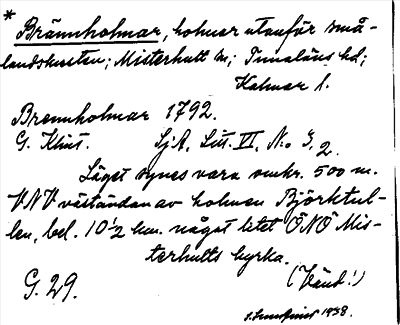 * Brännholmar, holmar utanför små-
landskusten; Misterhult sn; Tunaläns hd;
Kalmar l.
Brennholmar 1792.
G. Klint. SjA, Litt. VI, No 3, 2.
Läget synes vara omkr. 500 m.
VNV väständan av holmen Björktul-
len, bel. 10 1/2 km. något litet ÖNÖ Mis-
terhults kyrka.
(Vänd!)
G. 29.
1938.